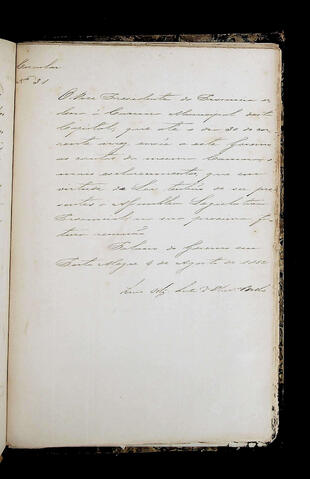 Circular
Nº 31
O Vice Presidente da Provincia or
dena á Camara Municipal desta
Capital, que até o dia 30 do cor
rente mez envie a este Governo
as contas da mesma Camara
mais esclarecimentos, que em
virtude da Lei, tem de ser pre
sentes a Assemblea Legislativa
Provincial na sua proxima fu
tura reunião.
Palacio do Governo em
Porto Alegre 4 de Agosto de 1852
Luis